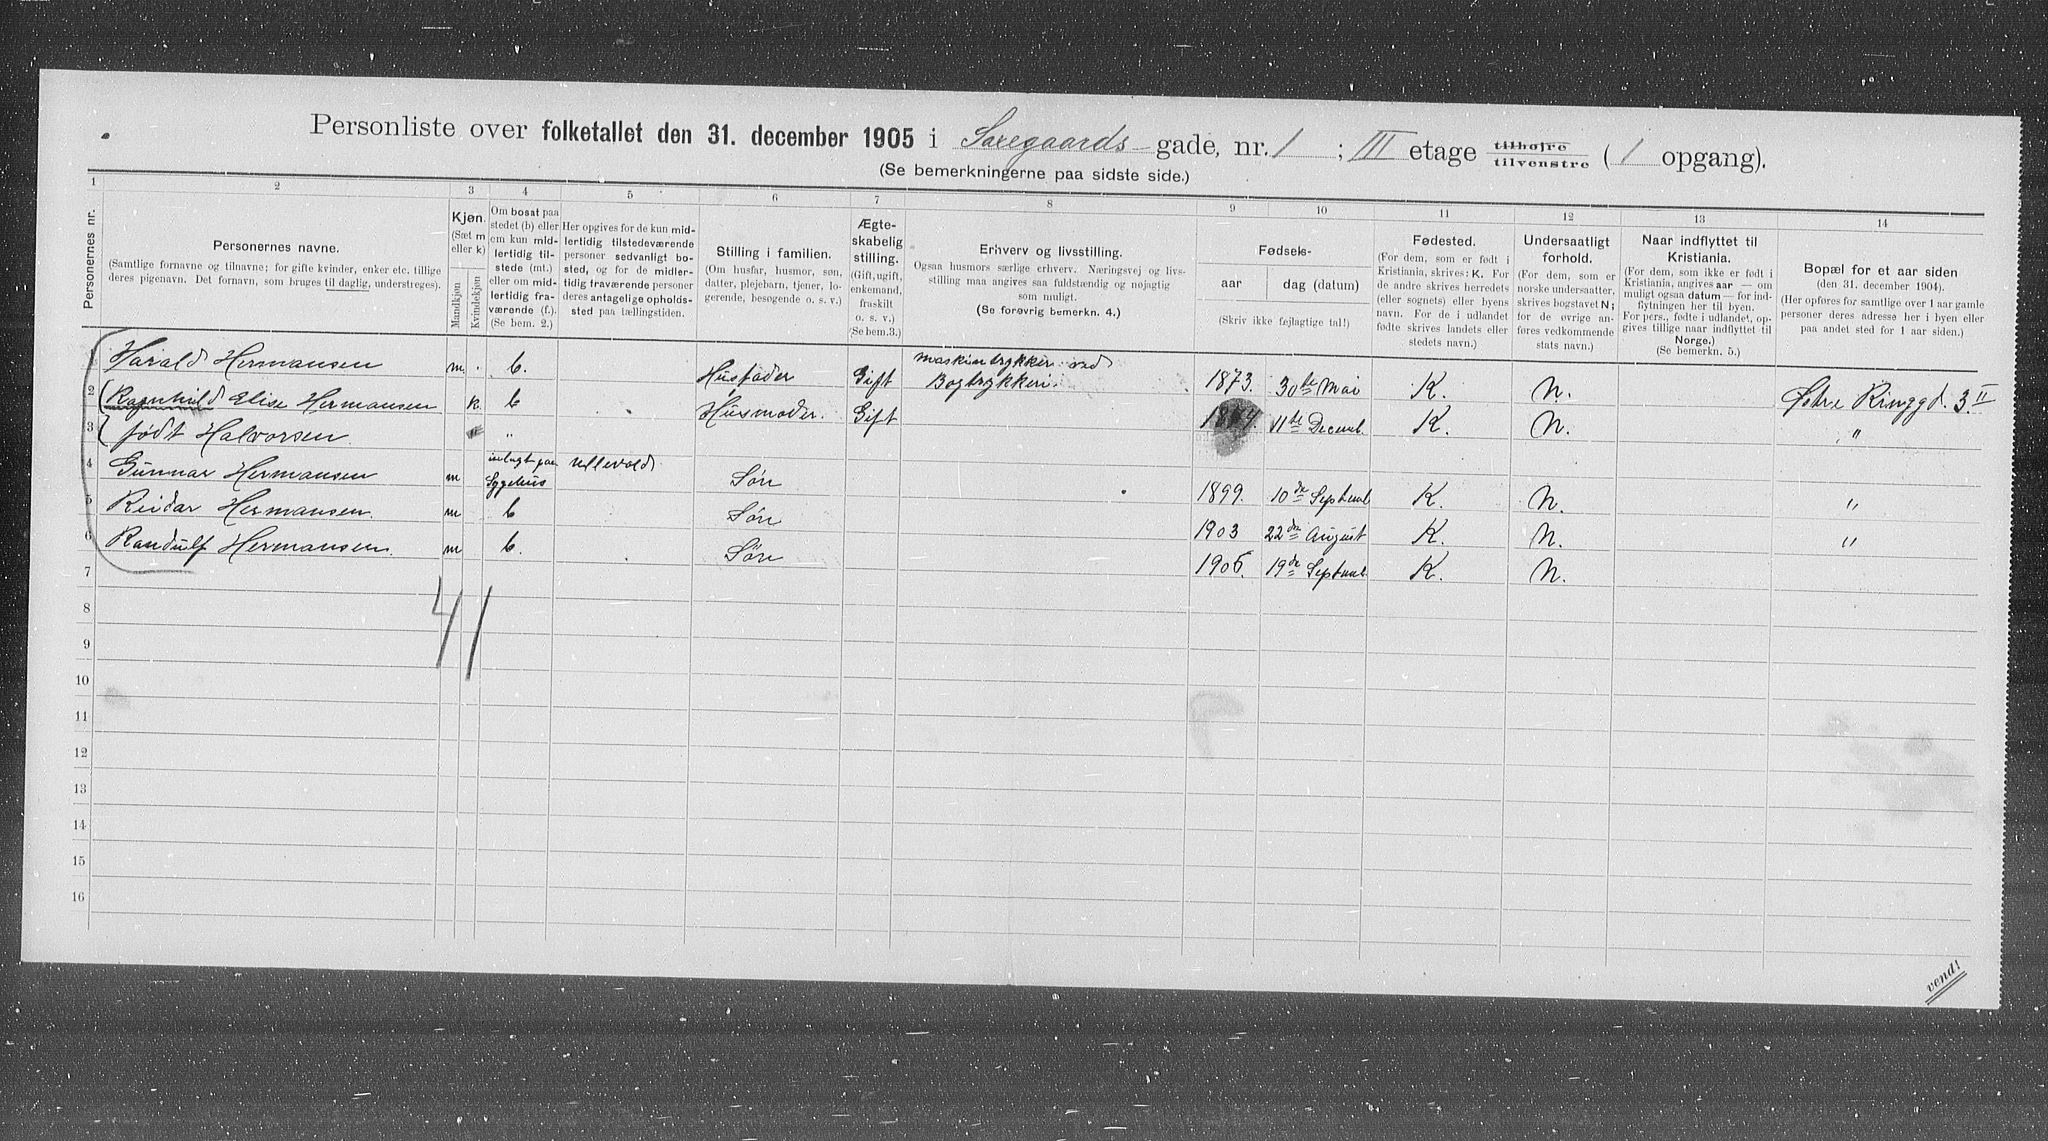 Personliste over folketallet den 31. december 1905 i Saxegaards gade, nr. 1 ; III etage tilhøjre tilvenstre ( 1 opgang).
(Se bemerkningerne paa sidste side.)
1 2 3 4 5 6 7 8 9 10 11 12 13 14
Personernes nr.
Personernes navne.
(Samtlige fornavne og tilnavne; for gifte kvinder, enker etc. tillige deres pigenavn. Det fornavn, som bruges til daglig, understreges).
Kjøn.
(Sæt m eller k)
Mandkjøn
Kvindekjøn
Om bosat paa stedet (b) eller om kun midlertidig tilstede (mt.) eller om midlertidig fraværende (f.). (Se bem. 2.)
Her opgives for de kun midlertidig tilstedeværende personer sedvanligt bosted, og for de midlertidig fraværende personer deres antagelige opholdssted paa tællingstiden.
Stilling i familien.
(Om husfar, husmor, søn, datter, plejebarn, tjener, logerende, besøgende o. s. v.)
Ægteskabelig stilling.
(Gift, ugift, enkemand, fraskilt o. s. v.) (Se bem. 3.)
Erhverv og livsstilling.
Ogsaa husmors særlige erhverv. Næringsvej og livsstilling maa angives saa fuldstændig og nøjagtig som muligt.
(Se forøvrig bemerkn. 4.)
Fødsels-
aar
dag (datum)
(Skriv ikke fejlagtige tal!)
Fødested.
(For dem, som er født i Kristiania, skrives: K. For de andre skrives herredets (eller sognets) eller byens navn. For de i udlandet fødte skrives landets eller stedets navn.)
Undersaatligt forhold.
(For dem, som er norske undersaatter, skrives bogstavet N; for de øvrige anføres vedkommende stats navn.)
Naar indflyttet til Kristiania.
(For dem, som ikke er født i Kristiania, angives aar — om muligt ogsaa datum — for indflytningen her til byen. For pers., fødte i udlandet, opgives tillige naar indflyttet til Norge.)
(Se bemerkn. 5.)
Bopæl for et aar siden
(den 31. december 1904).
(Her opføres for samtlige over 1 aar gamle personer deres adresse her i byen eller paa andet sted for 1 aar siden.)
1 Harald Hermansen m. b. Husfader Gift Maskintrykker ved Bogtrykkeri. 1873. 30te Mai K. N. Østre Ringgd. 3.II
2 (Ragnhild Elise Hermansen k. b Husmoder. Gift 1874. 11te Decemb. K. N. "
3 født Halvorsen. "
4 Gunnar Hermansen m indlagt paa Sygehus Ullevold Søn 1899. 10de Septemb. K. N. "
5 Reidar Hermansen. m b Søn 1903 22de August K. N. "
6 Randulf Hermansen. m b. Søn 1905. 19de Septemb. K. N.
7
8
4 1
9
10
11
12
13
14
15
16
vend!